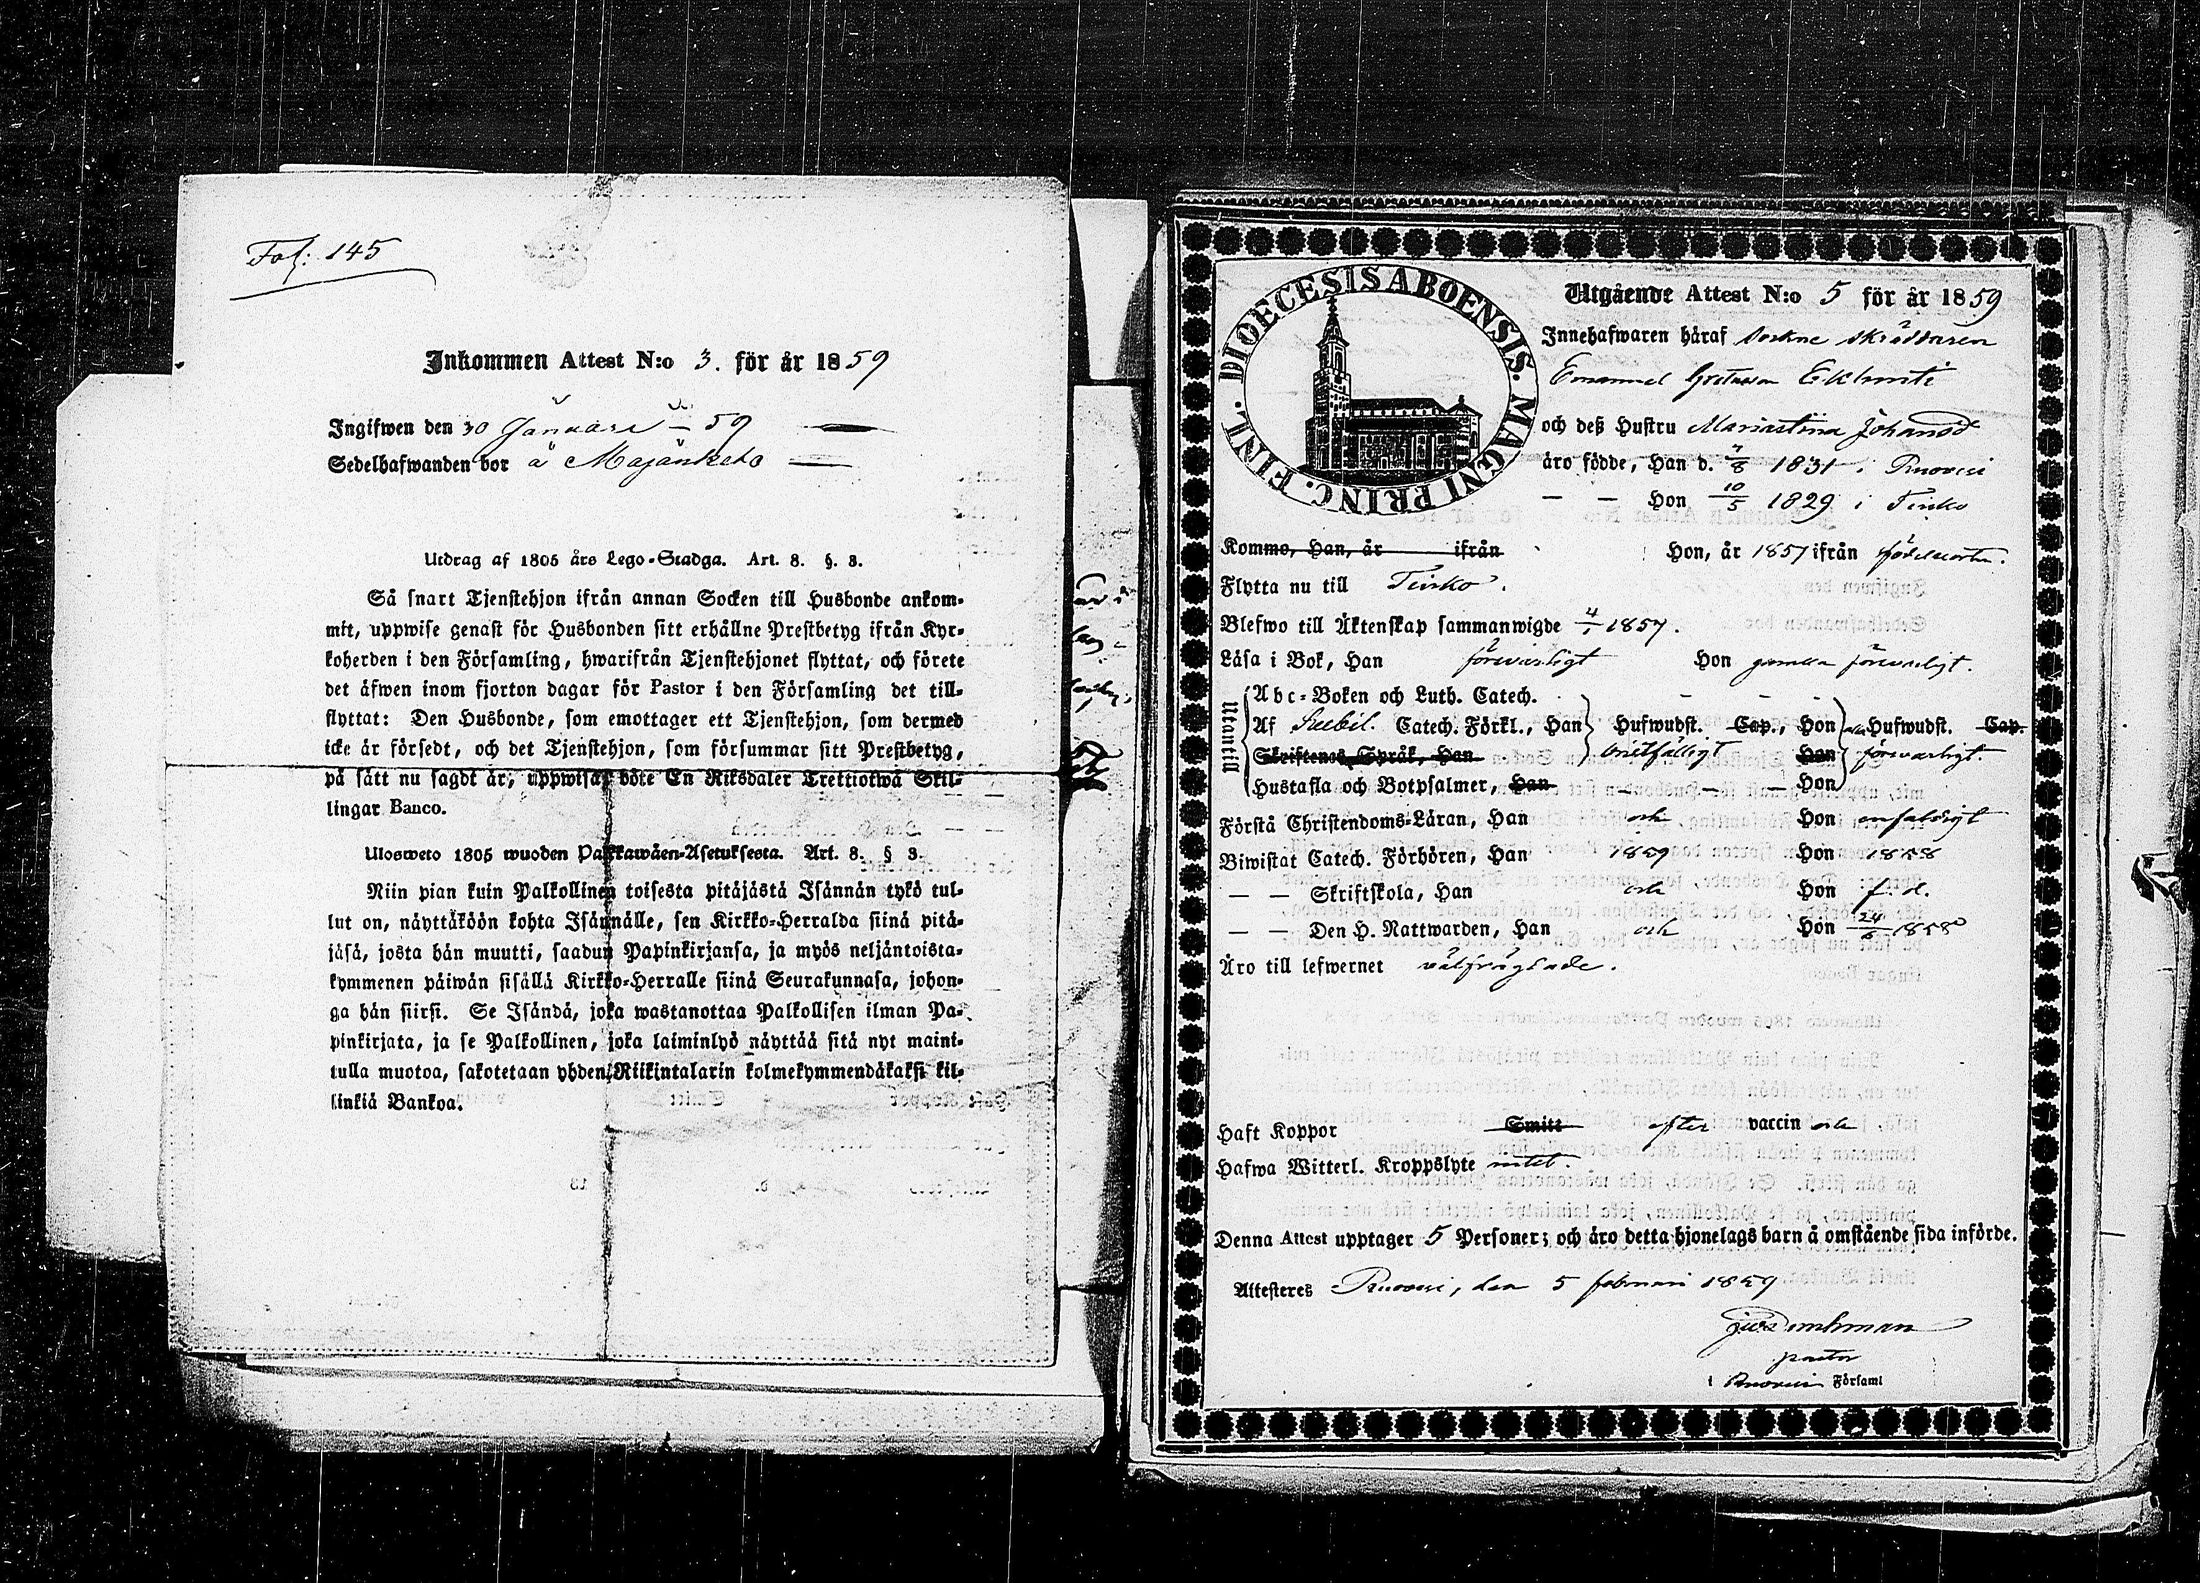 Fol: 145
Inkommen Attest N:o 3. för år 1859
Ingifwen den 30 Januari – 59
Sedelhafwanden bor å Majänketo
Utdrag af 1805 års Lego-Stadga. Art. 8. §. 3.
Så snart Tjenstehjon ifrån annan Socken till Husbonde ankom-
mit, uppwise genast för Husbonden sitt erhållne Prestbetyg ifrån Kyr-
koherden i den Församling, hwarifrån Tjenstehjonet flyttat, och förete
det äfwen inom fjorton dagar för Pastor i den Församling det till-
flyttat: Den Husbonde, som emottager ett Tjenstehjon, som dermed
icke är försedt, och det Tjenstehjon, som försummar sitt Prestbetyg,
på sätt nu sagdt är, uppwisa, böte En Riksdaler Trettiotwå Skil-
lingar Banco.
Ulosweto 1805 wuoden Palkkawäen-Asetuksesta. Art. 8. § 3.
Niin pian kuin Palkollinen toisesta pitäjästä Isännän tykö tul-
lut on, näyttäköön kohta Isännälle, sen Kirkko-Herralda siinä pitä-
jäsä, josta hän muutti, saadun Papinkirjansa, ja myös neljäntoista-
kymmenen päiwän sisällä Kirkko-Herralle siinä Seurakunnasa, johon-
ga hän siirsi. Se Isändä, joka wastanottaa Palkollisen ilman Pa-
pinkirjata, ja se Palkollinen, joka laiminlyö näyttää sitä nyt maini-
tulla muotoa, sakotetaan yhden Riikintalarin kolmekymmendäkaksi kil-
linkiä Bankoa.
DIOECESIS ABOENSIS. MAGNI PRINC. FINL.
Utgående Attest N:o 5 för år 1859
Innehafwaren häraf Sockne skräddaren
Emanuel Gretasson Eklund
och deß Hustru Mariastina Johansd
äro födde, Han d. 7/8 1831 i Punovesi
— — Hon 10/5 1829 i Tenko
Kommo, Han, år ifrån Hon, år 1857 ifrån födelseorten.
Flytta nu till
Blefwo till Äktenskap sammanwigde 4/1 1857.
Läsa i Bok, Han försvarligt Hon försvarligt.
Utantill
Abc-Boken och Luth. Catech.
Af Svebil. Catech. Förkl., Han Hufwudst. Cap., Hon Hufwudst. Cap.
Skriftenes Språk, Han Han försvarligt.
Hustafla och Botpsalmer, Han — — — Hon
Förstå Christendoms-Läran, Han och Hon enfaldigt
Biwistat Catech. Förhören, Han 1859 Hon 1858
— — Skriftskola, Han och Hon f. d.
— — Den H. Nattwarden, Han och Hon 24/6 1858
Äro till lefwernet välfrägdade.
Haft Koppor Smitt efter vaccin och
Hafwa Witterl. Kroppslyte intet.
Denna Attest upptager 5 Personer; och äro detta hjonelags barn å omstående sida införde.
Attesteres den 5 februari 1859
pastor
i Församl